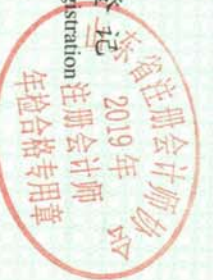 登记
gistration
山东省注册会计师协会
2019年
注册会计师
年检合格专用章